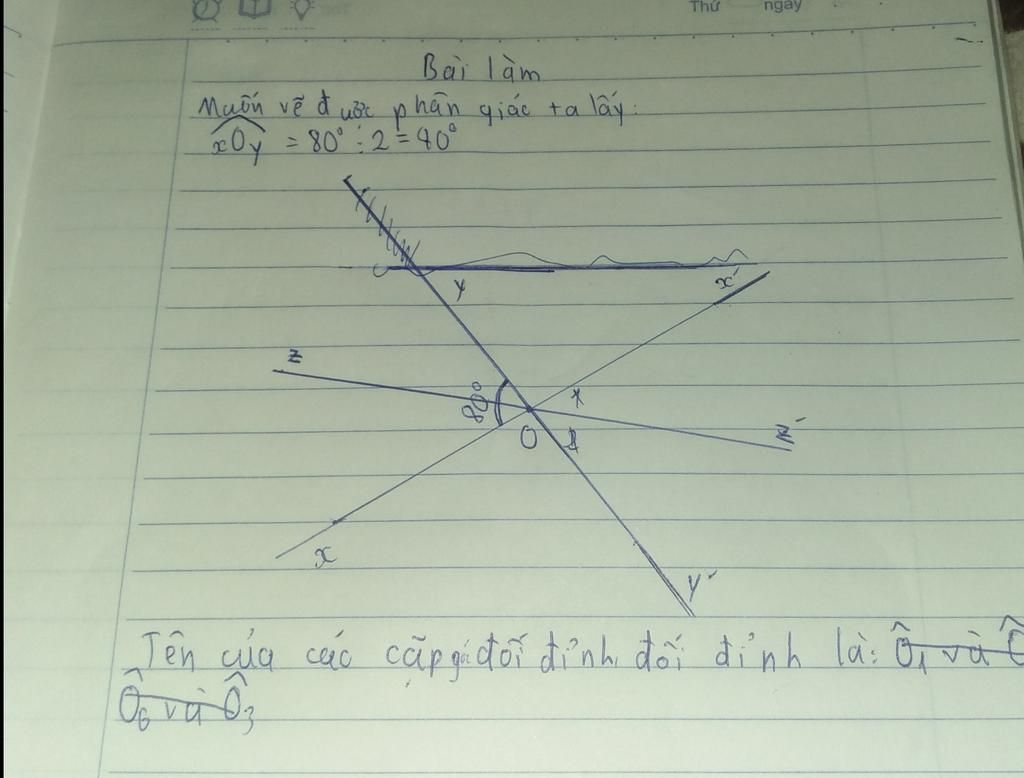 Thứ ngày
Bài làm
Muốn vẽ được phân giác ta lấy:
xOy = 80° : 2 = 40°
y
x'
z
80°
O
z'
x
y'
Tên của các cặp góc đối đỉnh, đối đỉnh là: Ô1 và Ô
Ô6 và Ô3